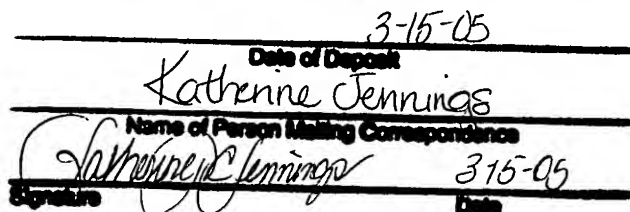 3-15-05
Date of Deposit
Katherine Jennings
Name of Person Making Correspondence
Katherine C Jennings 3-15-05
Signature Date